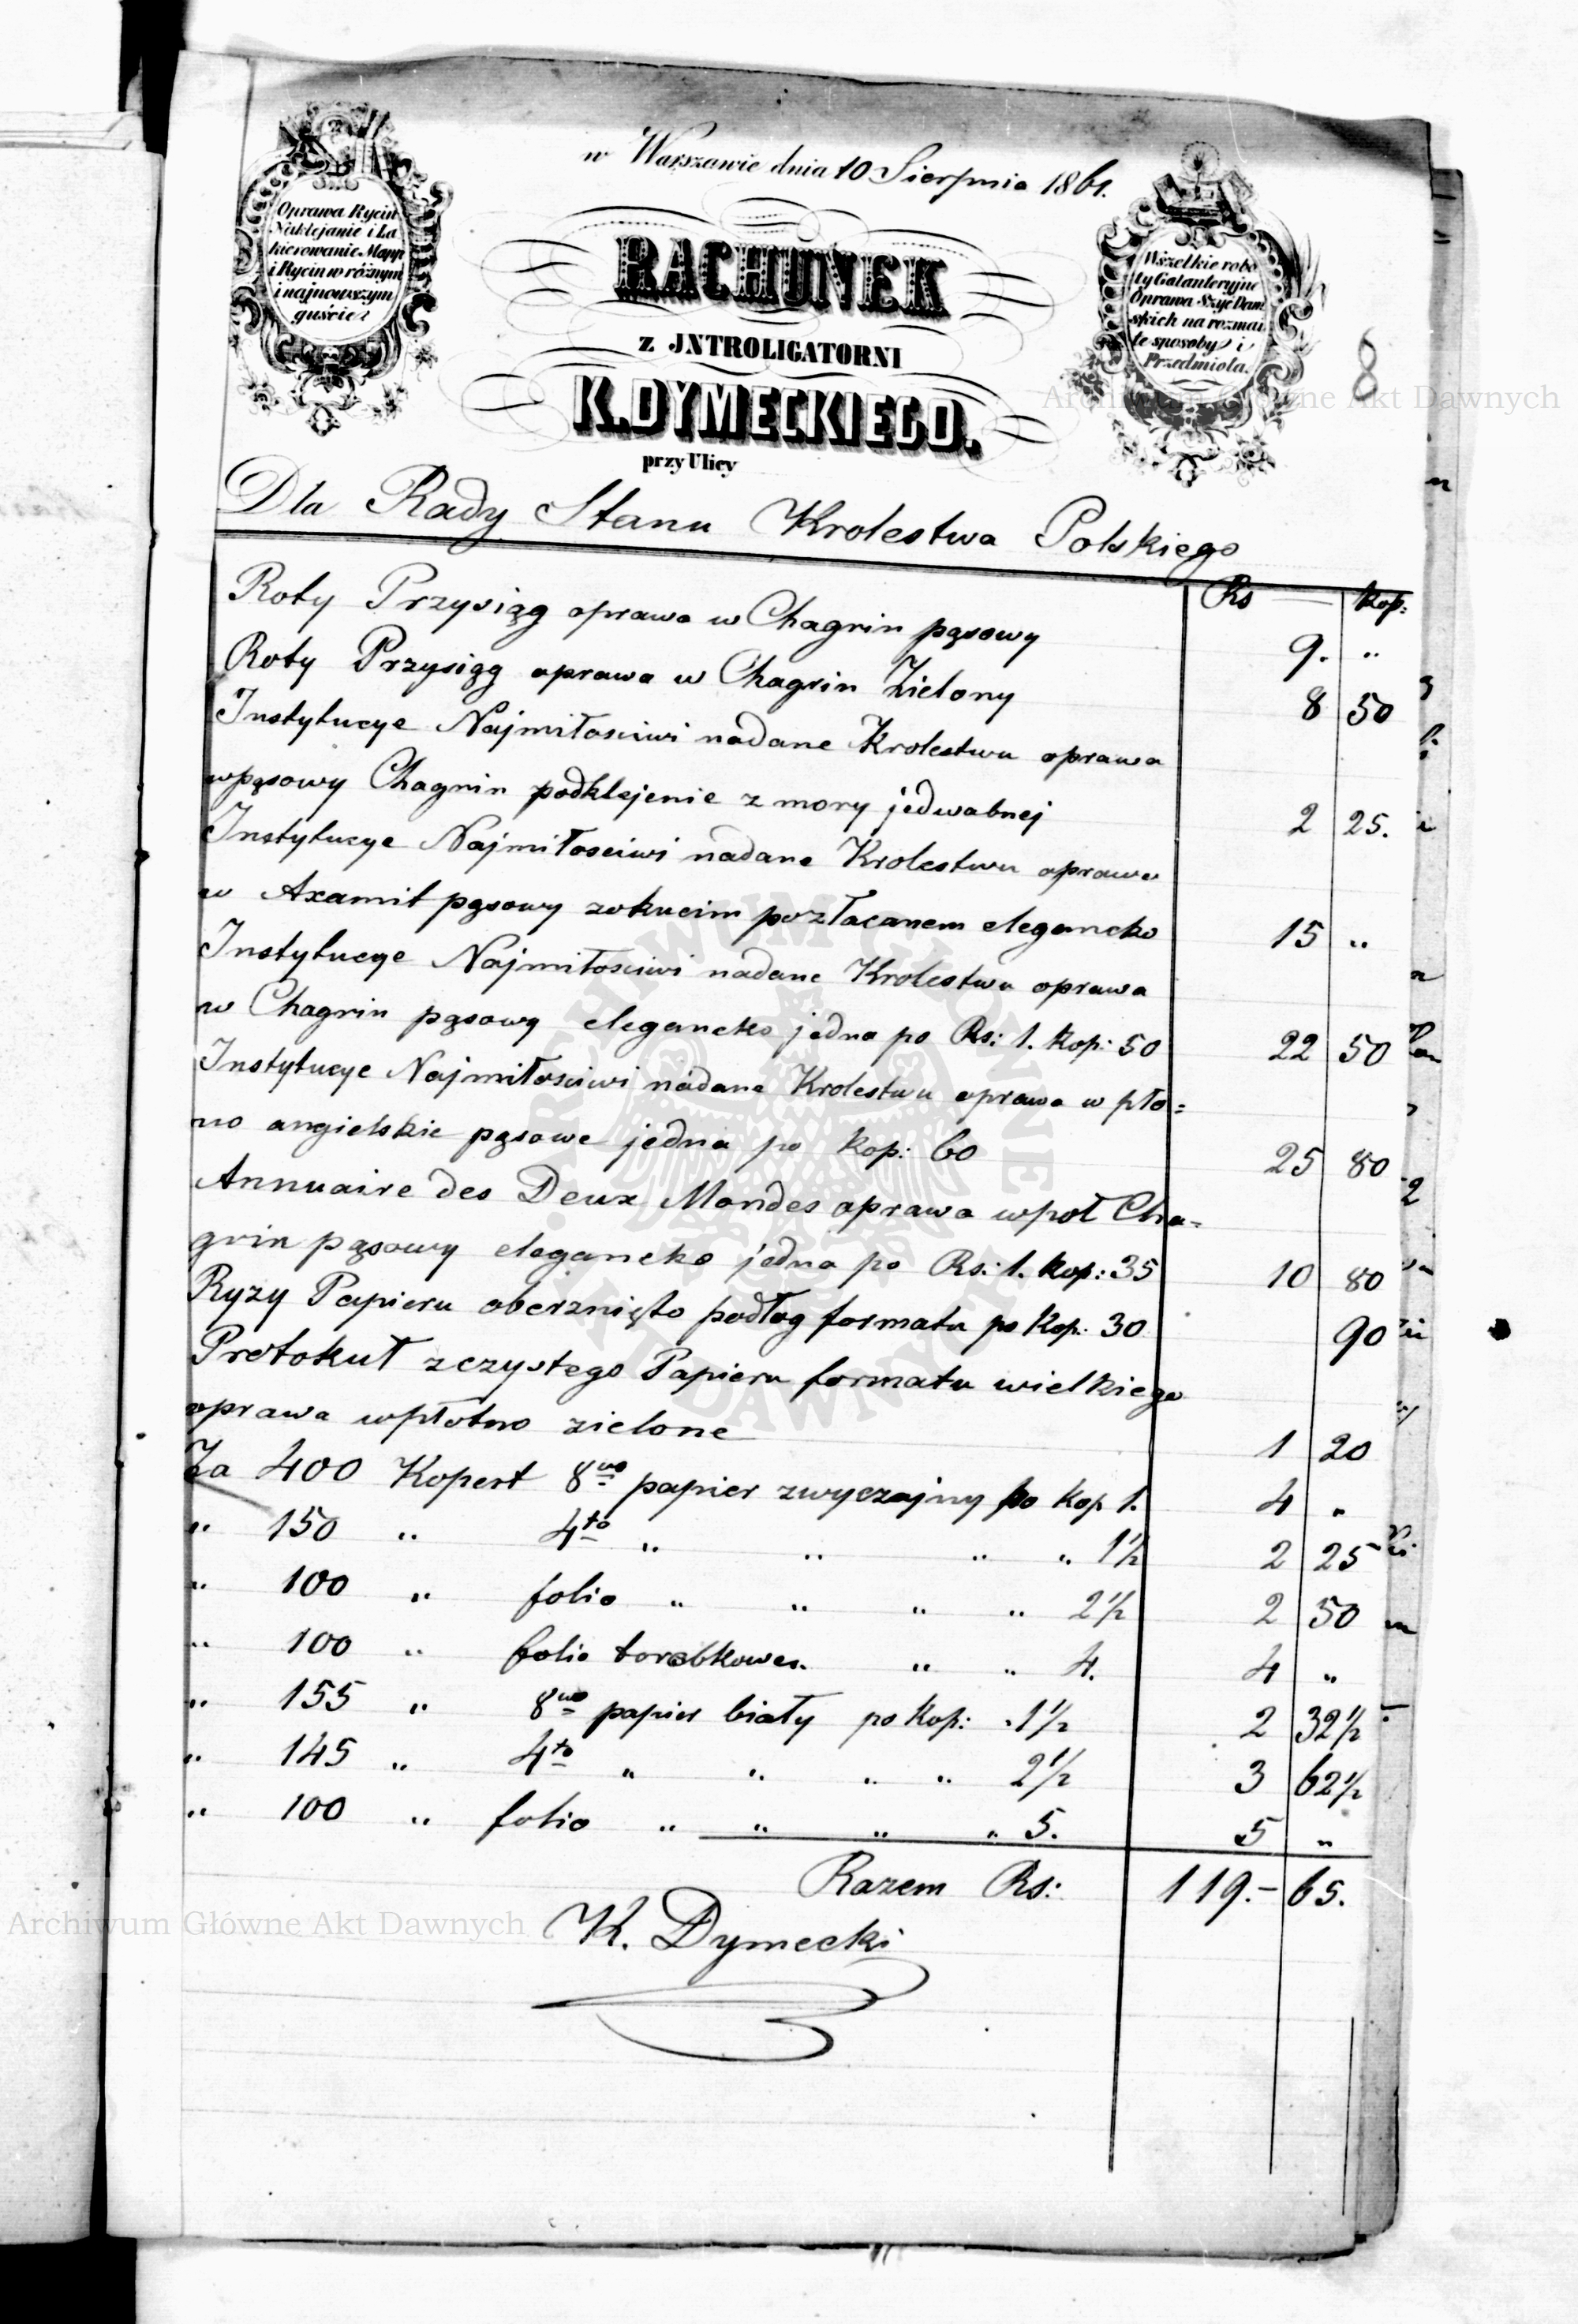 w Warszawie dnia 10 Sierpnia 1861.
Oprawa Rycin
Naklejanie i La
kierowanie Mapp
i Rycin w różnym
i najnowszym
guście
RACHUNEK
z JNTROLIGATORNI
K. DYMECKIEGO.
przy Ulicy
Wszelkie robo
ty Galanteryjne
Oprawa Szyć Dam
skich na rozmai
te sposoby i
Przedmiola.
8
Dla Rady Stanu Krolestwa Polskiego
Rs kop:
Roty Przysiąg oprawa w Chagrin pąsowy 9. „
Roty Przysiąg oprawa w Chagrin Zielony 8 50
Instytucye Najmiłosciwi nadane Krolestwu oprawa
wpąsowy Chagrin podklejenie z mory jedwabnej 2 25.
Instytucye Najmiłosciwi nadane Krolestwu oprawa
w Axamit pąsowy zokucim pozłacanem elegancko 15 „
Instytucye Najmiłosciwi nadane Krolestwu oprawa
w Chagrin pąsowy elegancko jedna po Rs: 1. kop: 50 22 50
Instytucye Najmiłosciwi nadane Krolestwu oprawa w płó=
no angielskie pąsowe jedna po kop: 60 25 80
Annuaire des Deux Mondes oprawa wpoł Cha=
grin pąsowy elegancko jedna po Rs: 1. kop: 35 10 80
Ryzy Papieru oberznięto podług formatu po Kop: 30 90
Protokuł zczystego Papieru formatu wielkiego
oprawa wpłotno zielone 1 20
Za 400 Kopert 8vo papier zwyczajny po kop 1. 4 „
„ 150 „ 4to „ „ „ „ 1½ 2 25
„ 100 „ folio „ „ „ „ 2½ 2 50
„ 100 „ folio torebkowe „ „ 4. 4 „
„ 155 „ 8vo papier biały po Kop: 1½ 2 32½
„ 145 „ 4to „ „ „ „ 2½ 3 62½
„ 100 „ folio „ „ „ „ 5. 5 „
Razem Rs: 119.- 65.
K. Dymecki
Archiwum Główne Akt Dawnych
Archiwum Główne Akt Dawnych
ARCHIWUM GŁÓWNE AKT DAWNYCH